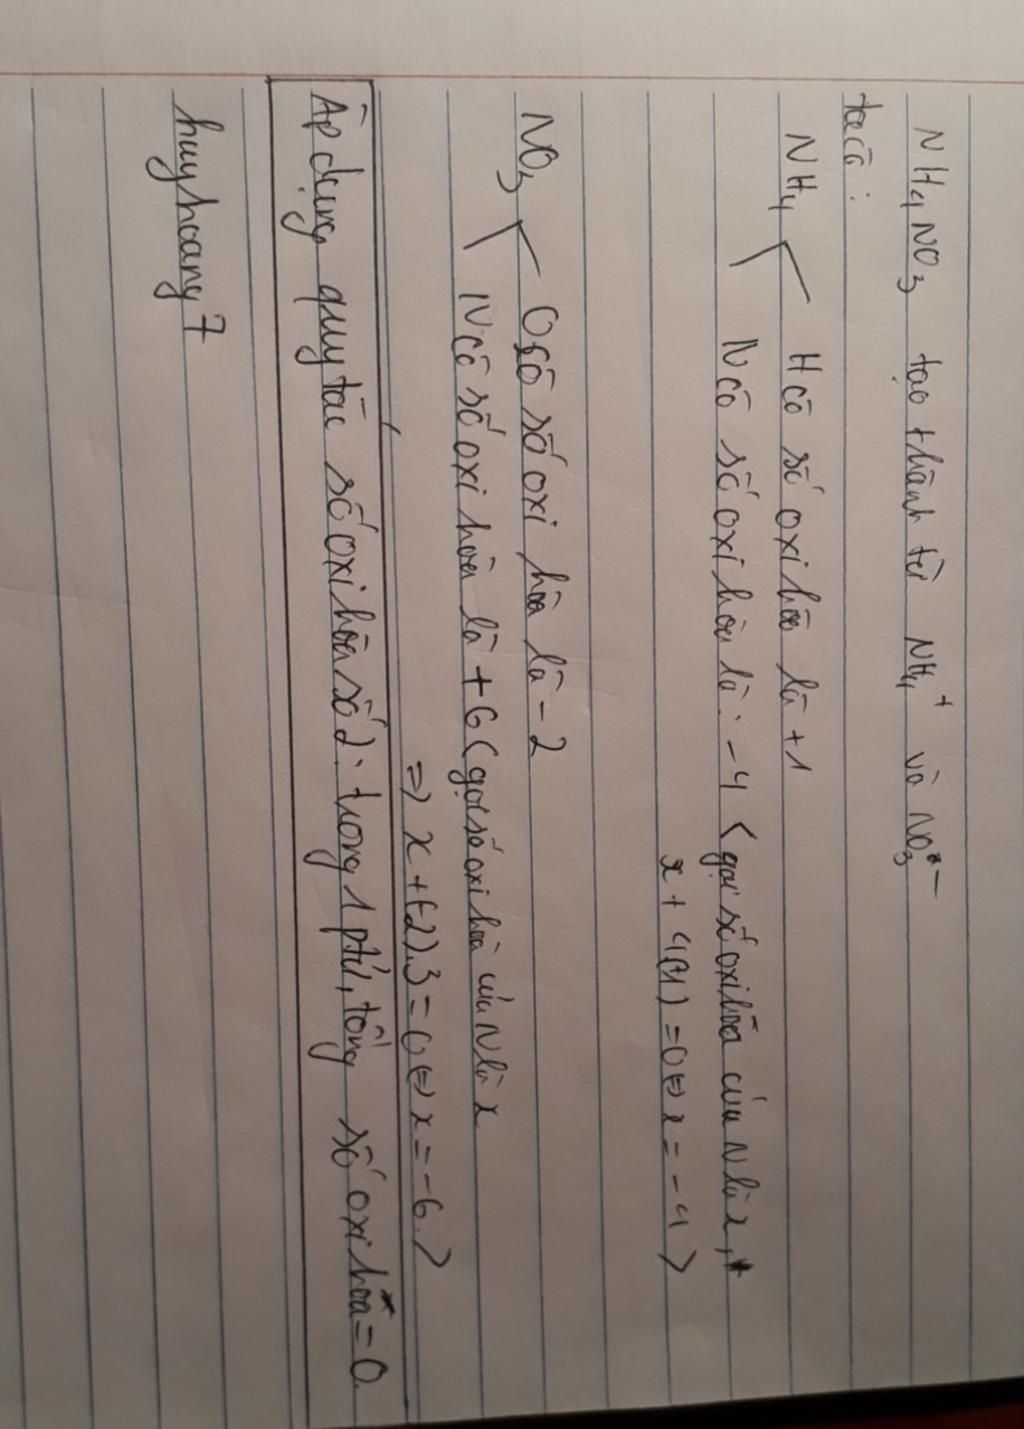 NH₄NO₃ tạo thành từ NH₄⁺ và NO₃⁻
ta có:
NH₄ < H có số oxi hóa là +1
N có số oxi hóa là: -4 (gọi số oxi hóa của N là x,
x + 4(+1) = 0 ⇔ x = -4)
NO₃ < O có số oxi hóa là -2
N có số oxi hóa là +6 (gọi số oxi hóa của N là x
⇒ x + (-2).3 = 0 ⇔ x = -6.)
Áp dụng quy tắc số oxi hóa số 2: trong 1 ptử, tổng số oxi hóa = 0.
huyhoang7